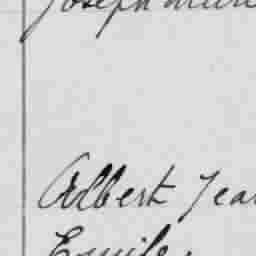 Joseph
Albert Jean
Emile